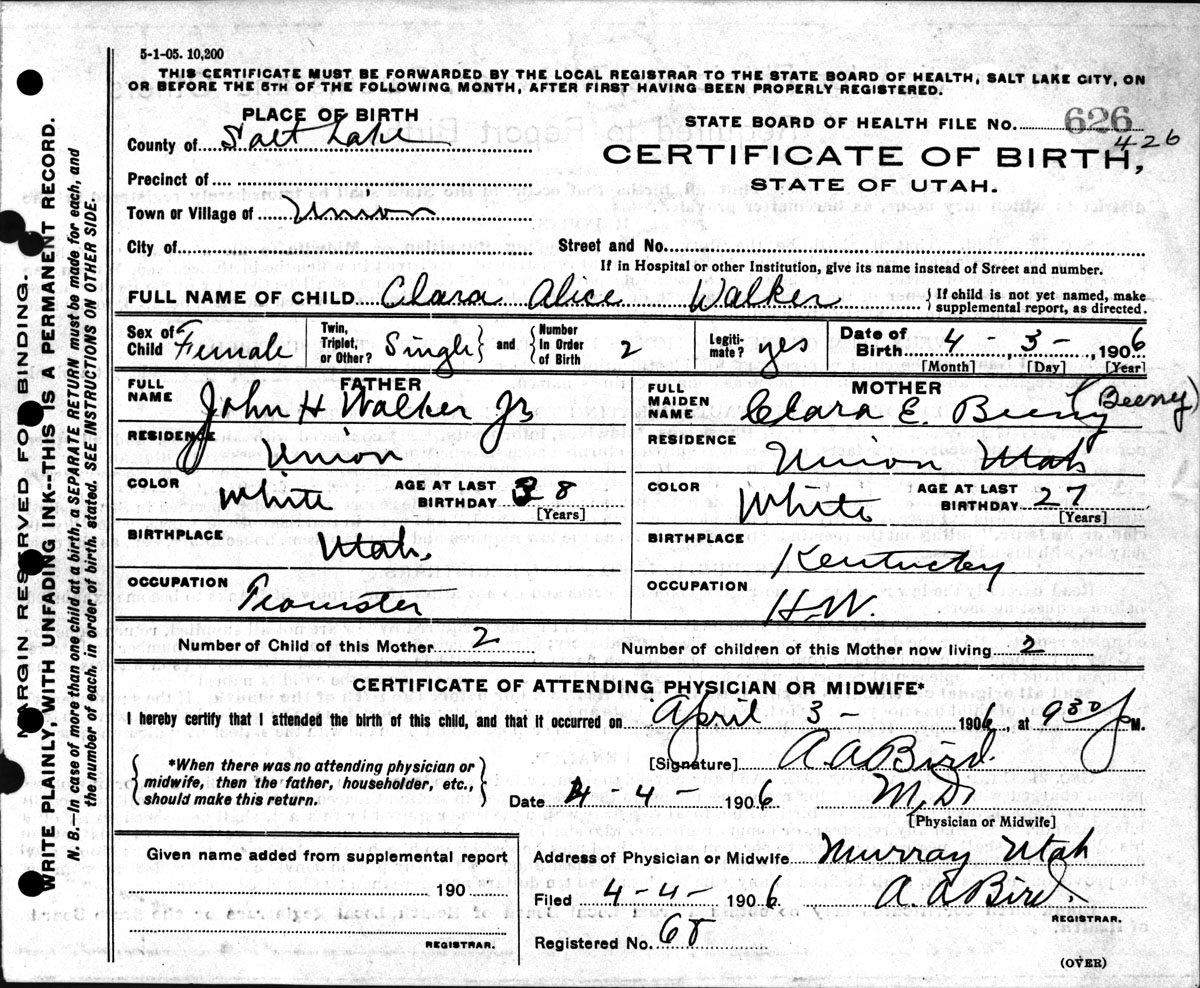 5-1-05. 10,200
THIS CERTIFICATE MUST BE FORWARDED BY THE LOCAL REGISTRAR TO THE STATE BOARD OF HEALTH, SALT LAKE CITY, ON
OR BEFORE THE 5TH OF THE FOLLOWING MONTH, AFTER FIRST HAVING BEEN PROPERLY REGISTERED.
PLACE OF BIRTH
STATE BOARD OF HEALTH FILE No. 626
426
County of Salt Lake
CERTIFICATE OF BIRTH,
STATE OF UTAH.
Precinct of
Town or Village of Union
City of Street and No.
If in Hospital or other Institution, give its name instead of Street and number.
FULL NAME OF CHILD Clara Alice Walker {If child is not yet named, make supplemental report, as directed.
Sex of Child Female Twin, Triplet, or Other? Single} and {Number In Order of Birth 2 Legitimate? yes Date of Birth 4 - 3 - 1906
[Month] [Day] [Year]
FATHER MOTHER
FULL NAME John H Walker Jr FULL MAIDEN NAME Clara E. Beeny (Beeny)
RESIDENCE Union RESIDENCE Union Utah
COLOR White AGE AT LAST BIRTHDAY 38 [Years] COLOR White AGE AT LAST BIRTHDAY 27 [Years]
BIRTHPLACE Utah. BIRTHPLACE Kentucky
OCCUPATION OCCUPATION H.W.
Number of Child of this Mother 2 Number of children of this Mother now living 2
CERTIFICATE OF ATTENDING PHYSICIAN OR MIDWIFE*
I hereby certify that I attended the birth of this child, and that it occurred on April 3 - 1906, at 9 30 P M.
{*When there was no attending physician or midwife, then the father, householder, etc., should make this return.}
[Signature] A. A Bird.
Date 4-4- 1906 M.D.
[Physician or Midwife]
Given name added from supplemental report
190
REGISTRAR.
Address of Physician or Midwife Murray Utah
Filed 4-4- 1906 A. A Bird.
REGISTRAR.
Registered No. 68
(OVER)
MARGIN RESERVED FOR BINDING.
WRITE PLAINLY, WITH UNFADING INK--THIS IS A PERMANENT RECORD.
N. B.—In case of more than one child at a birth, a SEPARATE RETURN must be made for each, and
the number of each, in order of birth, stated. SEE INSTRUCTIONS ON OTHER SIDE.